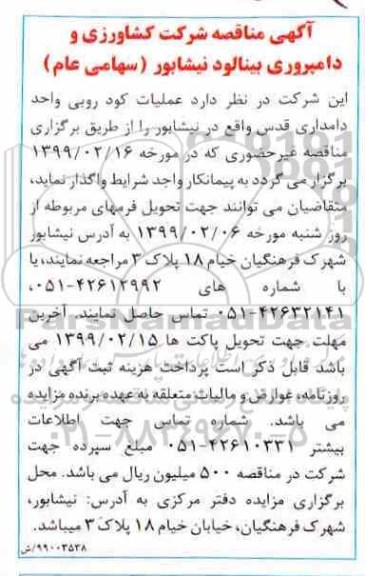 آگهی مناقصه شرکت کشاورزی و
دامپروری بینالود نیشابور (سهامی عام)
این شرکت در نظر دارد عملیات کود روبی واحد
دامداری قدس واقع در نیشابور را از طریق برگزاری
مناقصه غیرحضوری که در مورخه ۱۳۹۹/۰۲/۱۶
برگزار می گردد به پیمانکار واجد شرایط واگذار نماید،
متقاضیان می توانند جهت تحویل فرمهای مربوطه از
روز شنبه مورخه ۱۳۹۹/۰۲/۰۶ به آدرس نیشابور
شهرک فرهنگیان خیام ۱۸ پلاک ۳ مراجعه نمایند، یا
با شماره های ۴۲۶۱۲۹۹۲-۰۵۱،
۴۲۶۳۲۱۴۱-۰۵۱ تماس حاصل نمایند. آخرین
مهلت جهت تحویل پاکت ها ۱۳۹۹/۰۲/۱۵ می
باشد قابل ذکر است پرداخت هزینه ثبت آگهی در
روزنامه، عوارض و مالیات متعلقه به عهده برنده مزایده
می باشد. شماره تماس جهت اطلاعات
بیشتر ۴۲۶۱۰۳۳۱-۰۵۱ مبلغ سپرده جهت
شرکت در مناقصه ۵۰۰ میلیون ریال می باشد. محل
برگزاری مزایده دفتر مرکزی به آدرس: نیشابور،
شهرک فرهنگیان، خیابان خیام ۱۸ پلاک ۳ میباشد.
۹۹۰۰۳۵۳۸/ش
ParsNamadData
۰۲۱-۸۸۳۴۹۶۷۰-۵